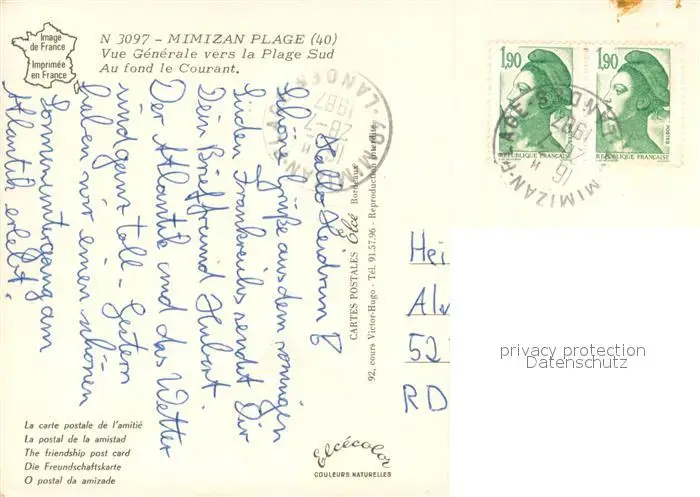 Image
de France
Imprimée
en France
N 3097 - MIMIZAN PLAGE (40)
Vue Générale vers la Plage Sud
Au fond le Courant.
Hallo Heidrun!
Schöne Grüße aus dem sonnigen
Süden Frankreichs sendet Dir
Dein Brieffreund Hubert.
Der Atlantik und das Wetter
sind ganz toll - Gestern
haben wir einen schönen
Sonnenuntergang am
Atlantik erlebt.
40 MIMIZAN-PLAGE
LANDES
16 H
28-7
1987
CARTES POSTALES Elcé Bordeaux
92, cours Victor-Hugo - Tél. 91.57.96 - Reproduction interdite
1,90
REPUBLIQUE FRANÇAISE
POSTES
1,90
REPUBLIQUE FRANÇAISE
POSTES
MIMIZAN-PLAGE
LANDES
16 H
1987
Hei
52
RD
privacy protection
Datenschutz
La carte postale de l'amitié
La postal de la amistad
The friendship post card
Die Freundschaftskarte
O postal da amizade
Elcécolor
COULEURS NATURELLES